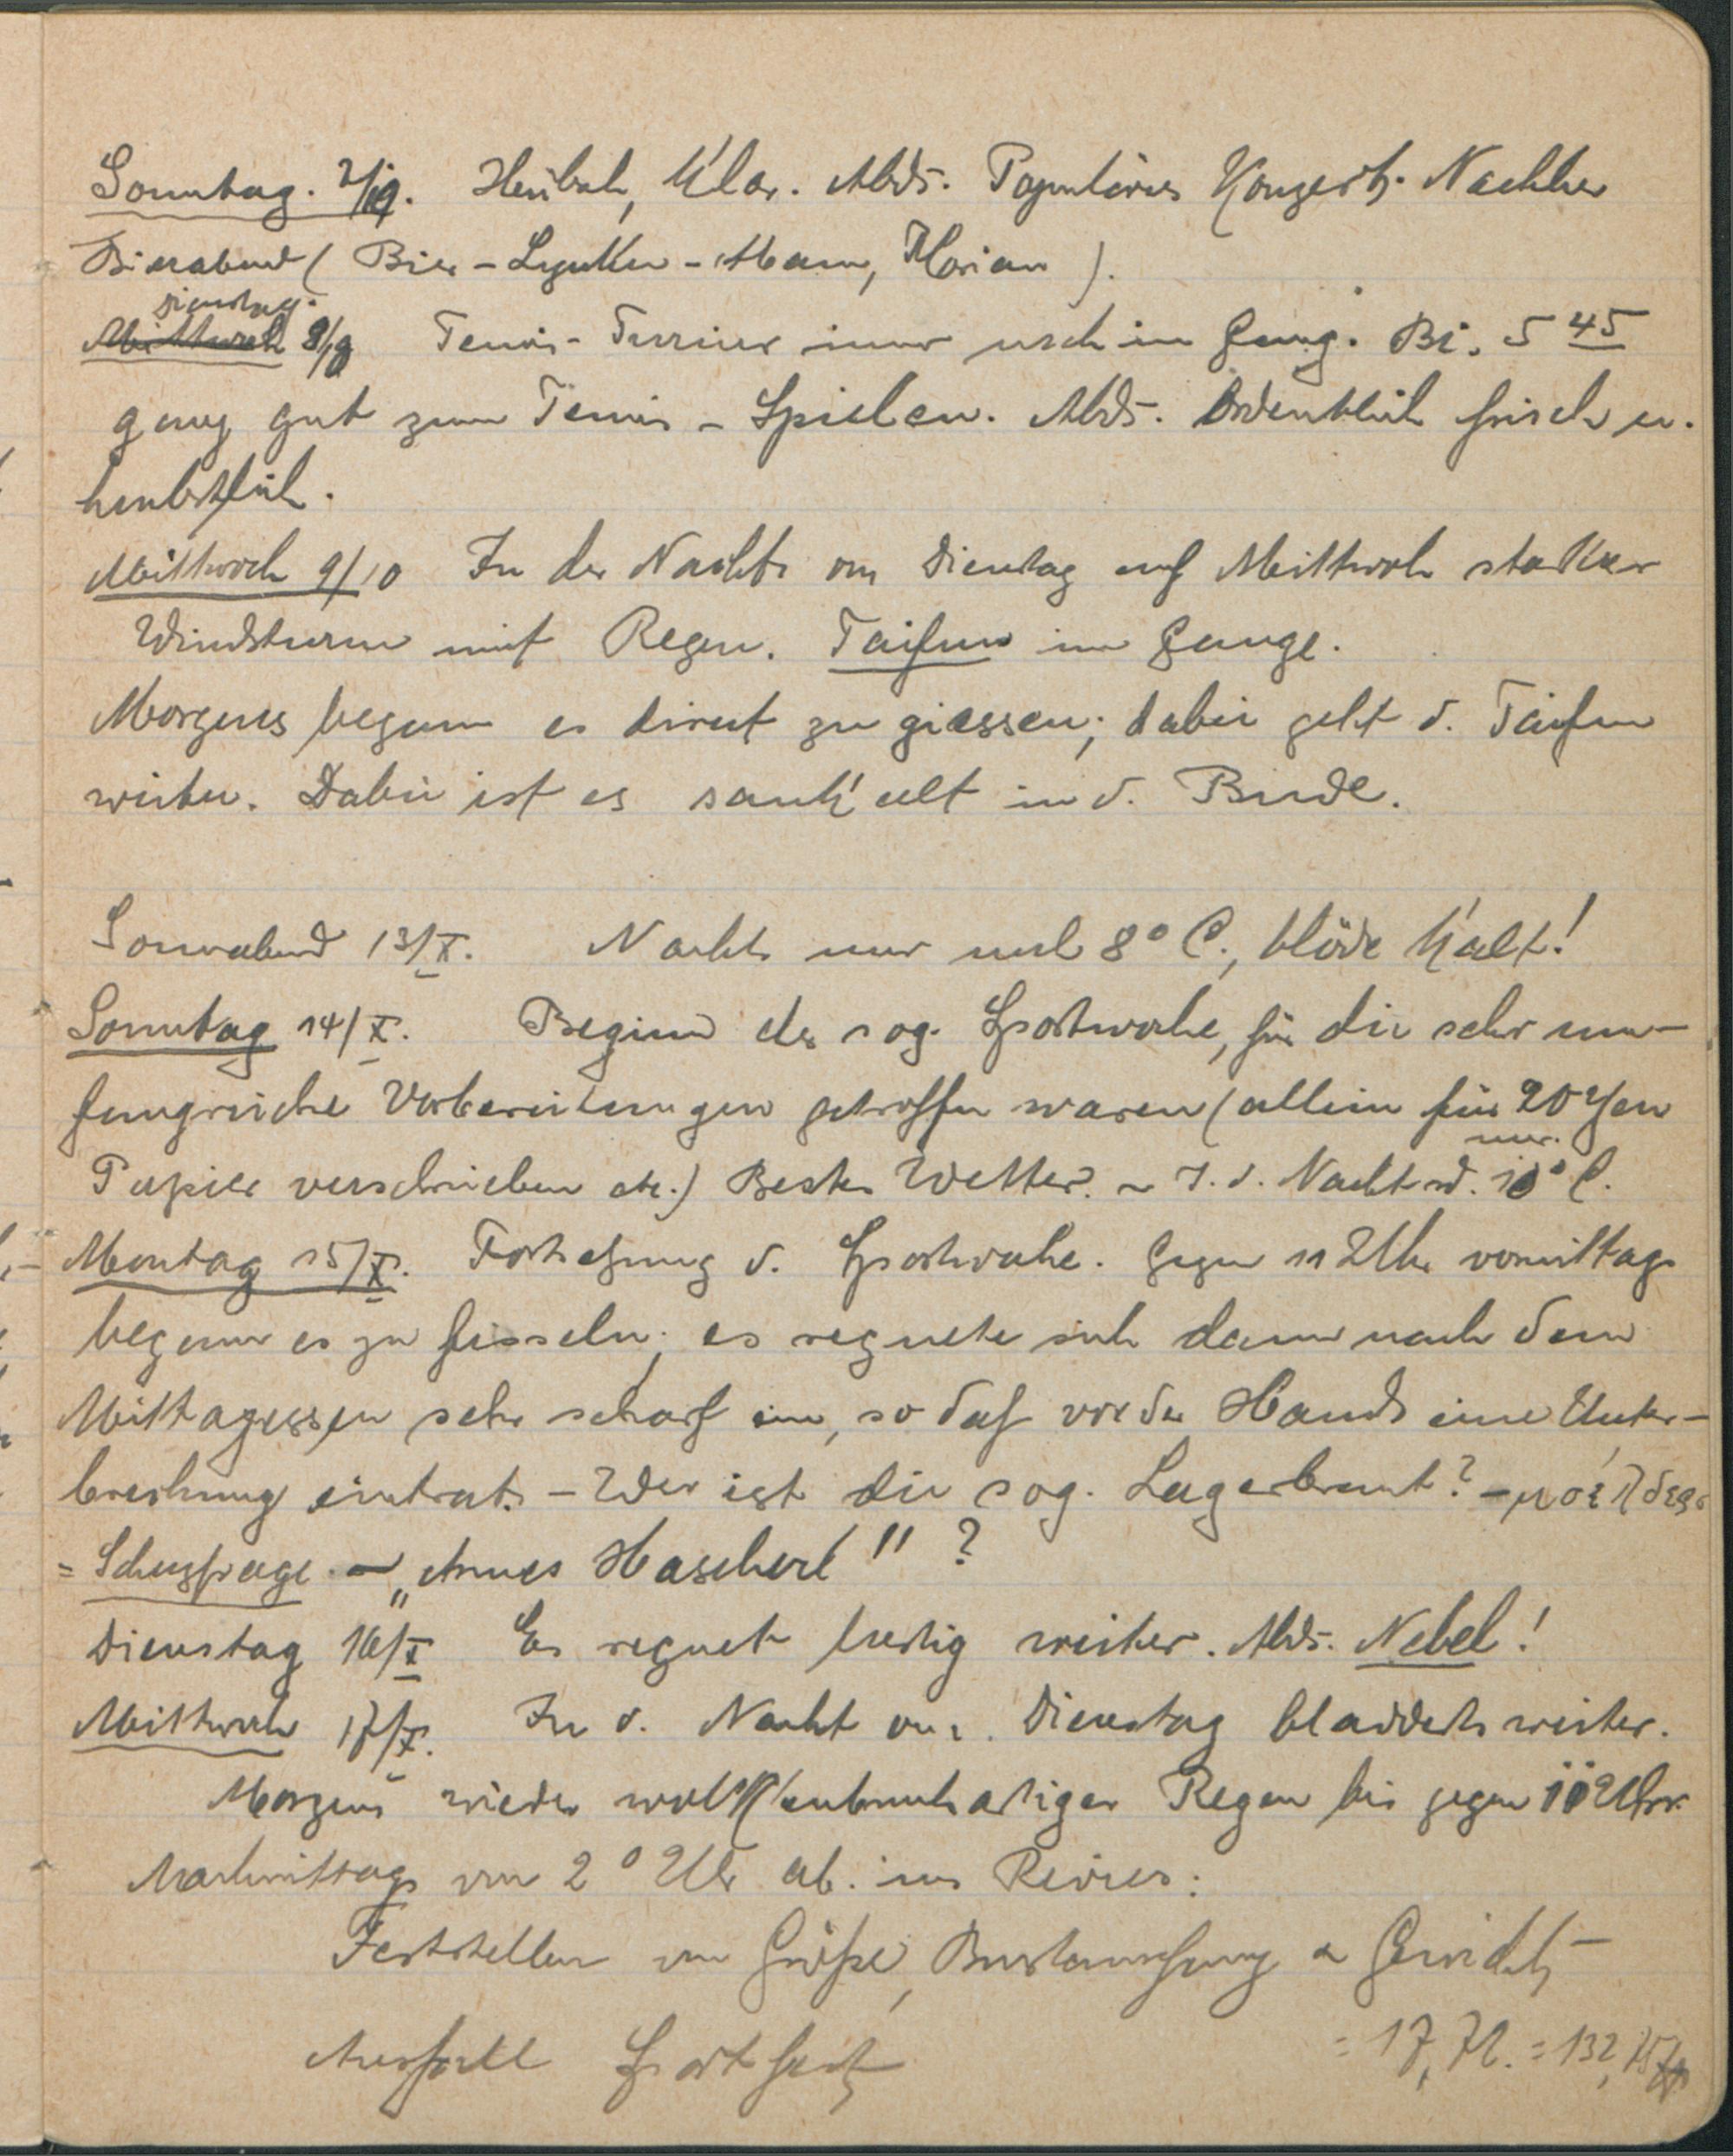 Sonntag. 7/10. Hübsch, klar. Abds. Populäres Konzert. Nachher
Bierabend (Bier - - Abam, Morian).
Dienstag.
Mittwoch 8/10 Tennis-Turnier immer noch im Gang. Bi. 5 45
ganz gut zum Tennis-Spielen. Abds. Ordentlich frisch u.
herbstlich.
Mittwoch 9/10 In der Nacht von Dienstag auf Mittwoch starker
Windsturm mit Regen. Taifun im Gange.
Morgens begann es direct zu giessen; dabei geht d. Taifun
weiter. Dabei ist es saukalt in d. Bude.
Sonnabend 13/X. Nachts nur noch 8° C., blöde kalt!
Sonntag 14/X. Beginn der sog. Sportwoche, für die sehr um-
fangreiche Vorbereitungen getroffen waren (allein für 20 Yen
Papier verschrieben etc.) Bestes Wetter. ~ I. d. Nacht nur 10° C.
Montag 15/X. Fortsetzung d. Sportwoche. Gegen 11 Uhr vormittags
begann es zu fisseln; es regnete sich dann nach dem
Mittagessen sehr scharf ein, so daß vor der Hand eine Unter-
brechung eintrat. - Wer ist die sog. Lagerbraut? -
= Scherzfrage - „Armes Hascherl" ?
Dienstag 16/X Es regnet lustig weiter. Abds. Nebel!
Mittwoch 17/X. In d. Nacht von Dienstag bladderts weiter.
Morgens wieder wolkenbruchartiger Regen bis gegen 11 Uhr.
Nachmittags von 2 ° Uhr ab. ins Revier:
Feststellen von Größe, Brustumfang & Gewicht -
Ausfall Sportfest = 17,7 = 132,